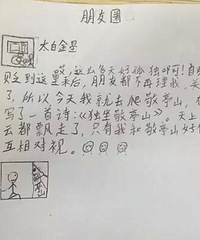 朋友圈
太白金星
哎,这么多天好孤独啊!自
贬到这里来后,朋友都不再理我,
了,所以今天我就去爬敬亭山,
写了一首诗:《独坐敬亭山》。天上
云都飘走了,只有我和敬亭山好
互相对视。